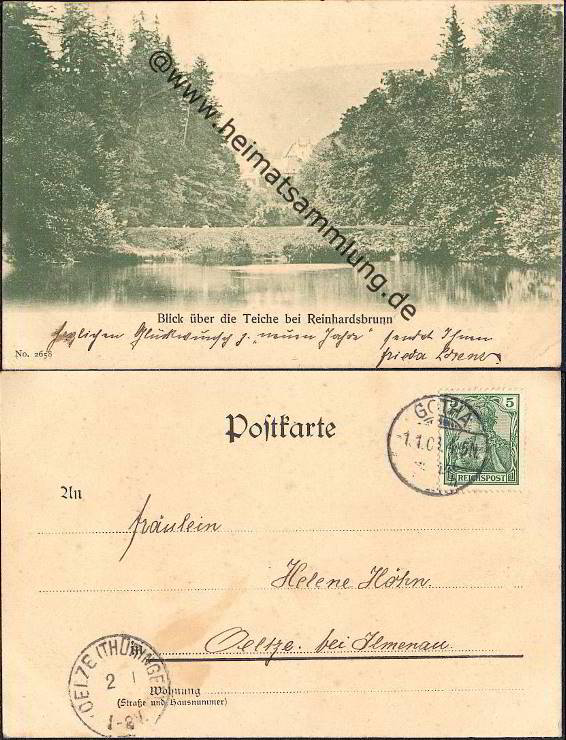 @www.heimatsammlung.de
Blick über die Teiche bei Reinhardsbrunn
Herzlichen Glückwunsch z. "neuen Jahre" sendet Ihnen
No. 2658
Frieda Lorenz.
Postkarte
GOTHA
1.1.0
5
REICHSPOST
An
Fräulein
Helene Höhn.
in Oeltze. bei Ilmenau.
OELZE (THÜRINGEN)
2 1
1-2
Wohnung
(Straße und Hausnummer)